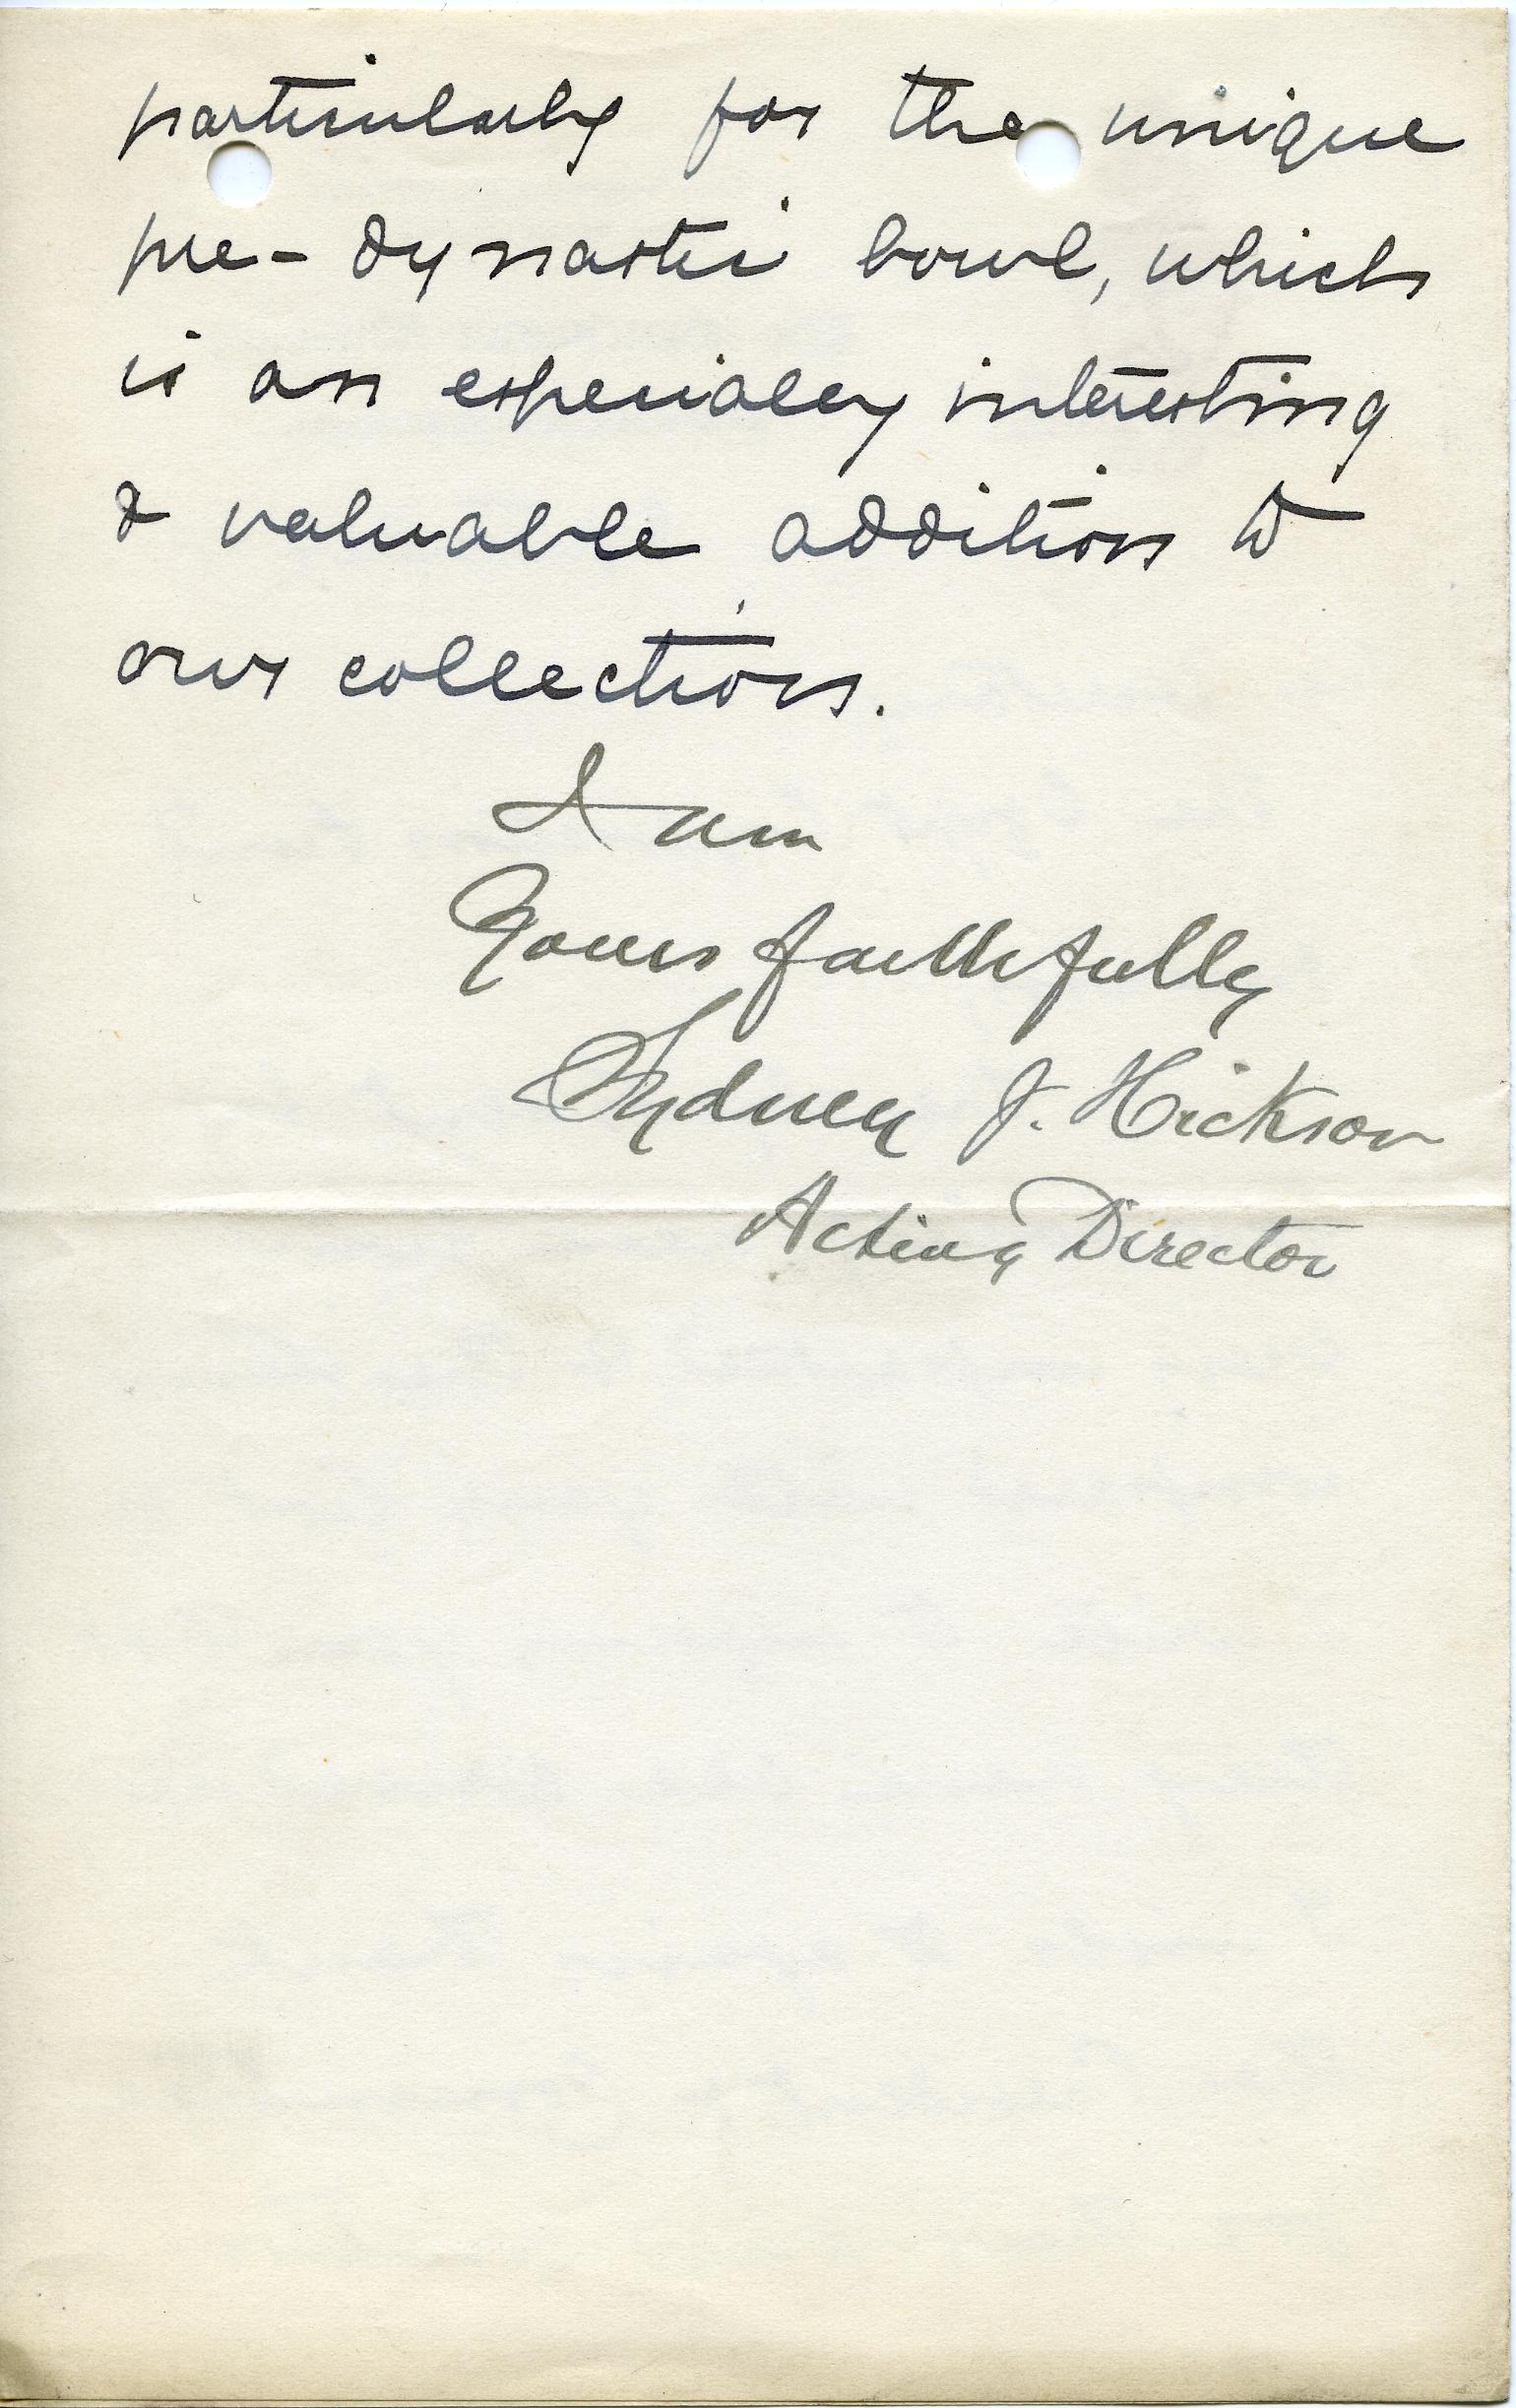 particularly for the unique
pre-dynastic bowl, which
is an especially interesting
& valuable addition to
our collection.
I am
Yours faithfully
Sydney J. Hickson
Acting Director